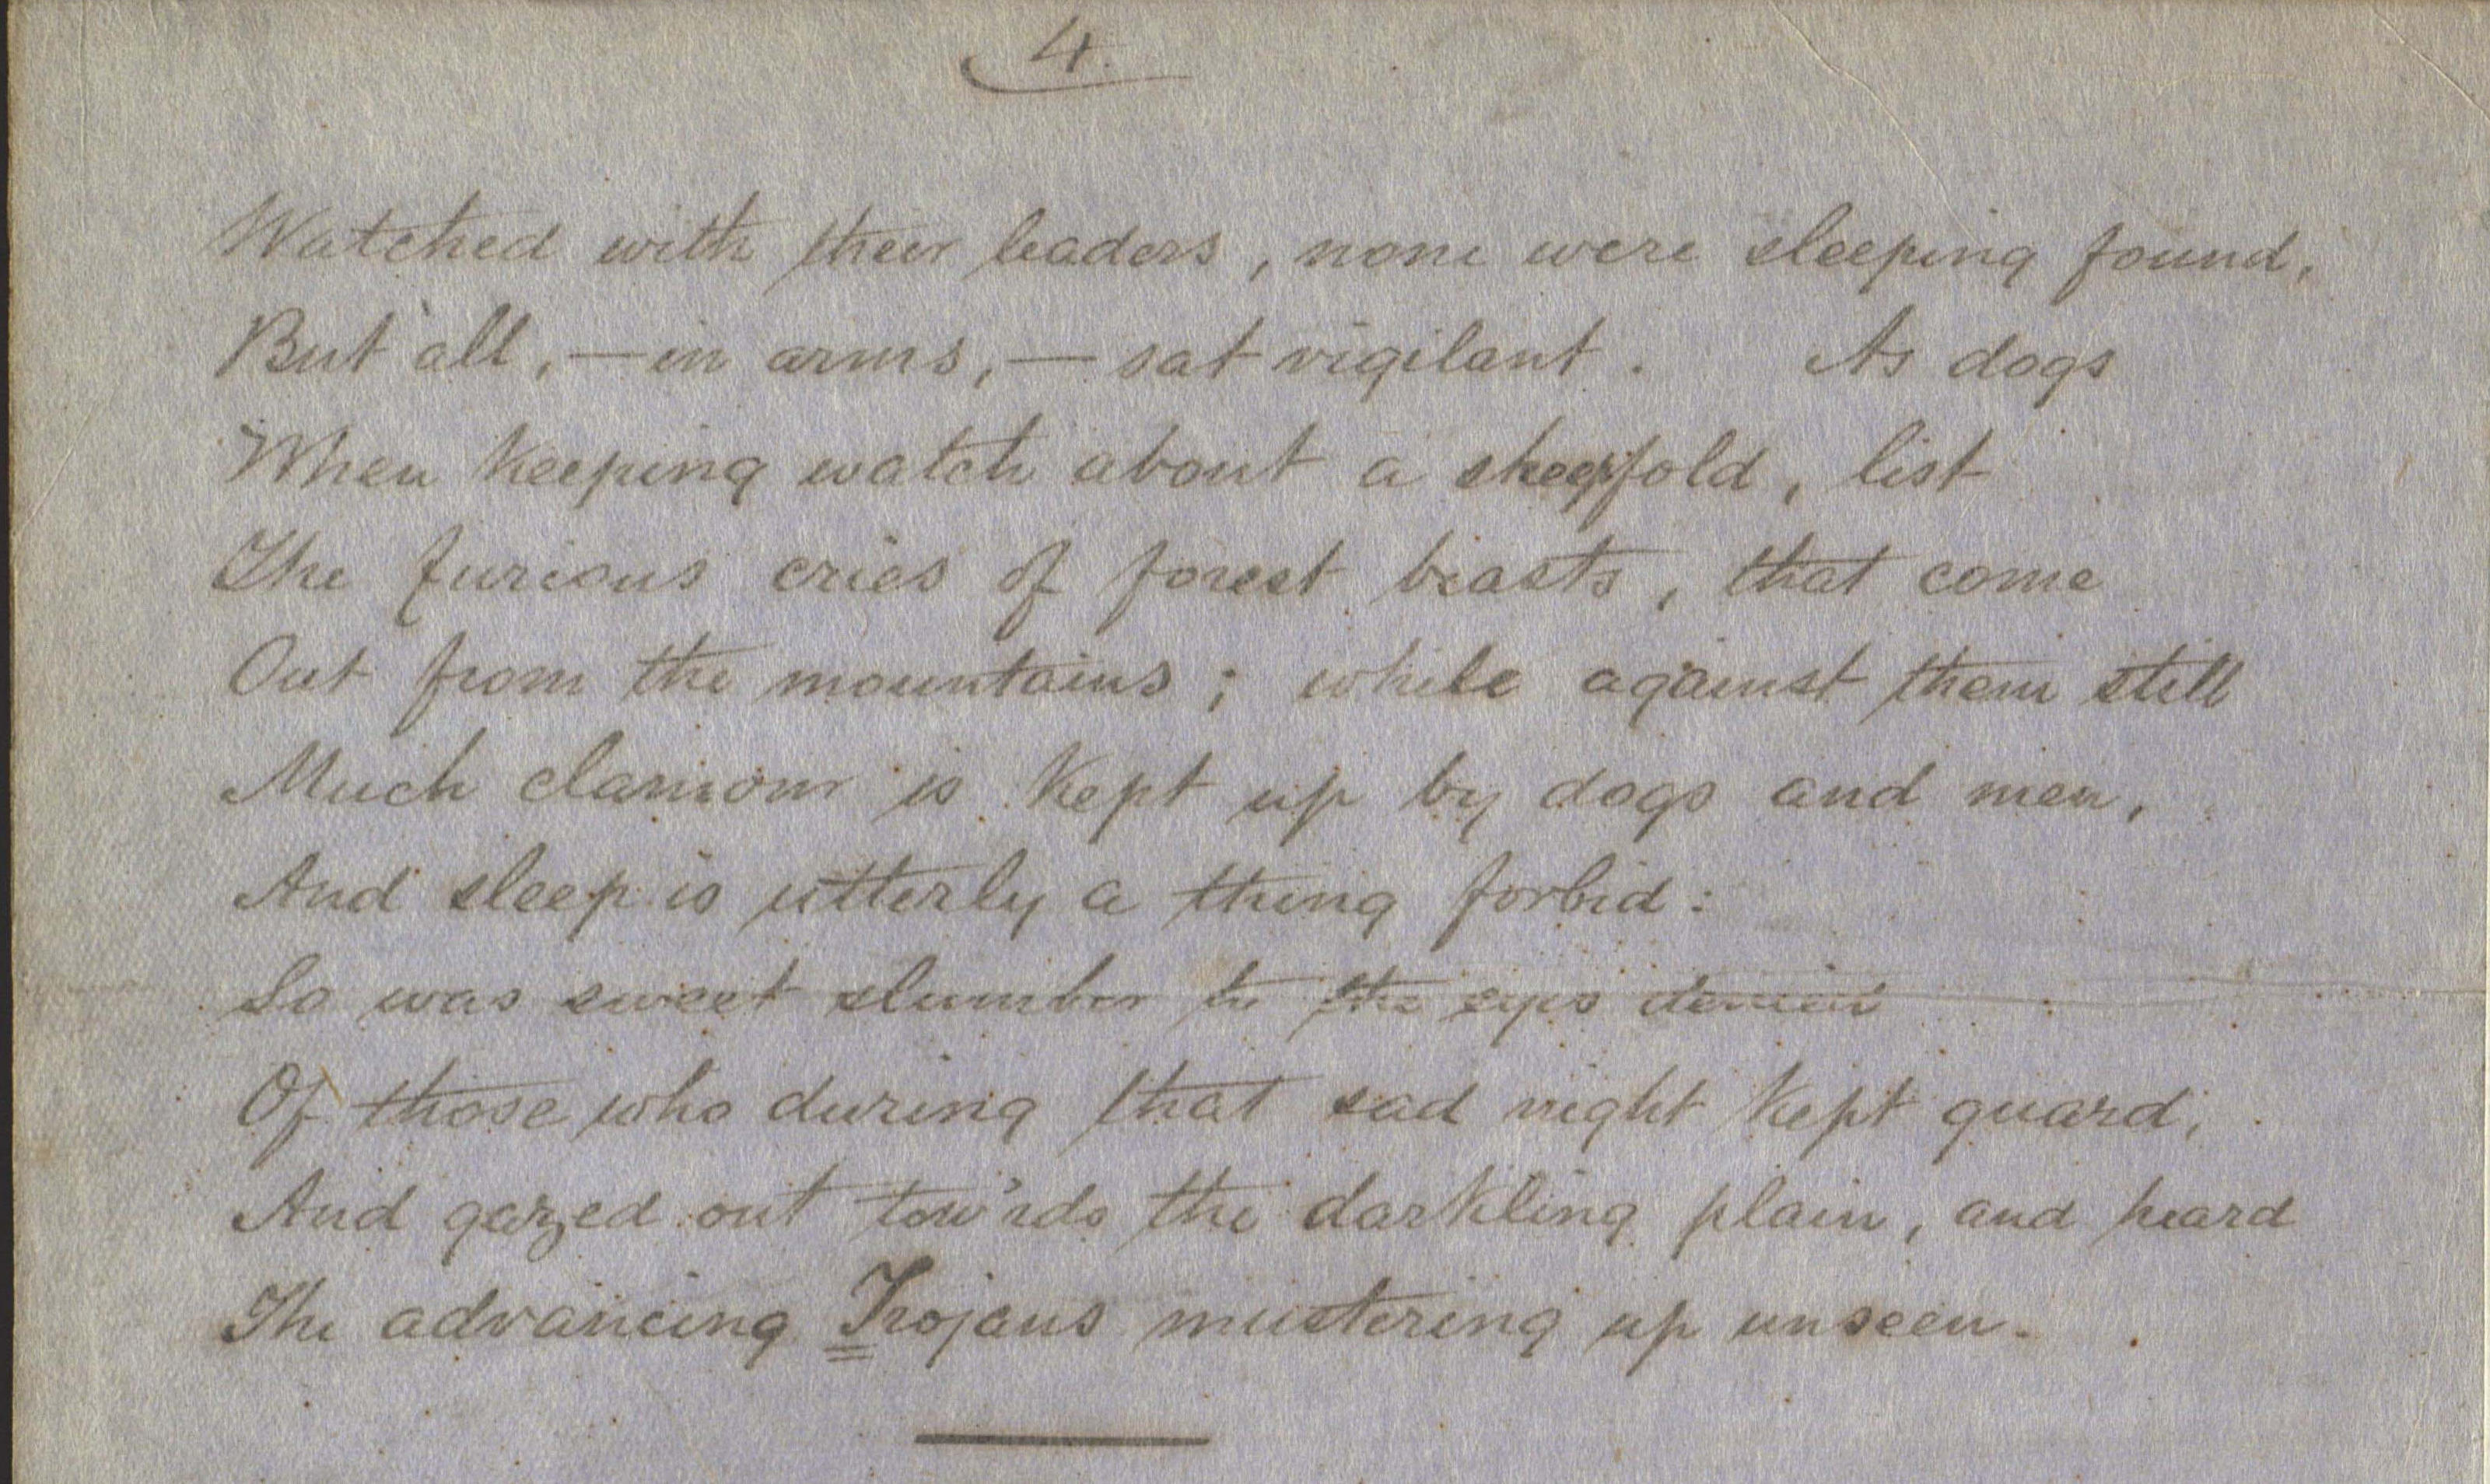 4.
Watched with their leaders, none were sleeping found,
But all, — in arms, — sat vigilant. As dogs
When keeping watch about a sheepfold, list
The furious cries of forest beasts, that come
Out from the mountains; while against them still
Much clamour is kept up by dogs and men,
And sleep is utterly a thing forbid:
So was sweet slumber to the eyes denied
Of those who during that sad night kept guard,
And gazed out tow'rds the darkling plain, and heard
The advancing Trojans mustering up unseen.